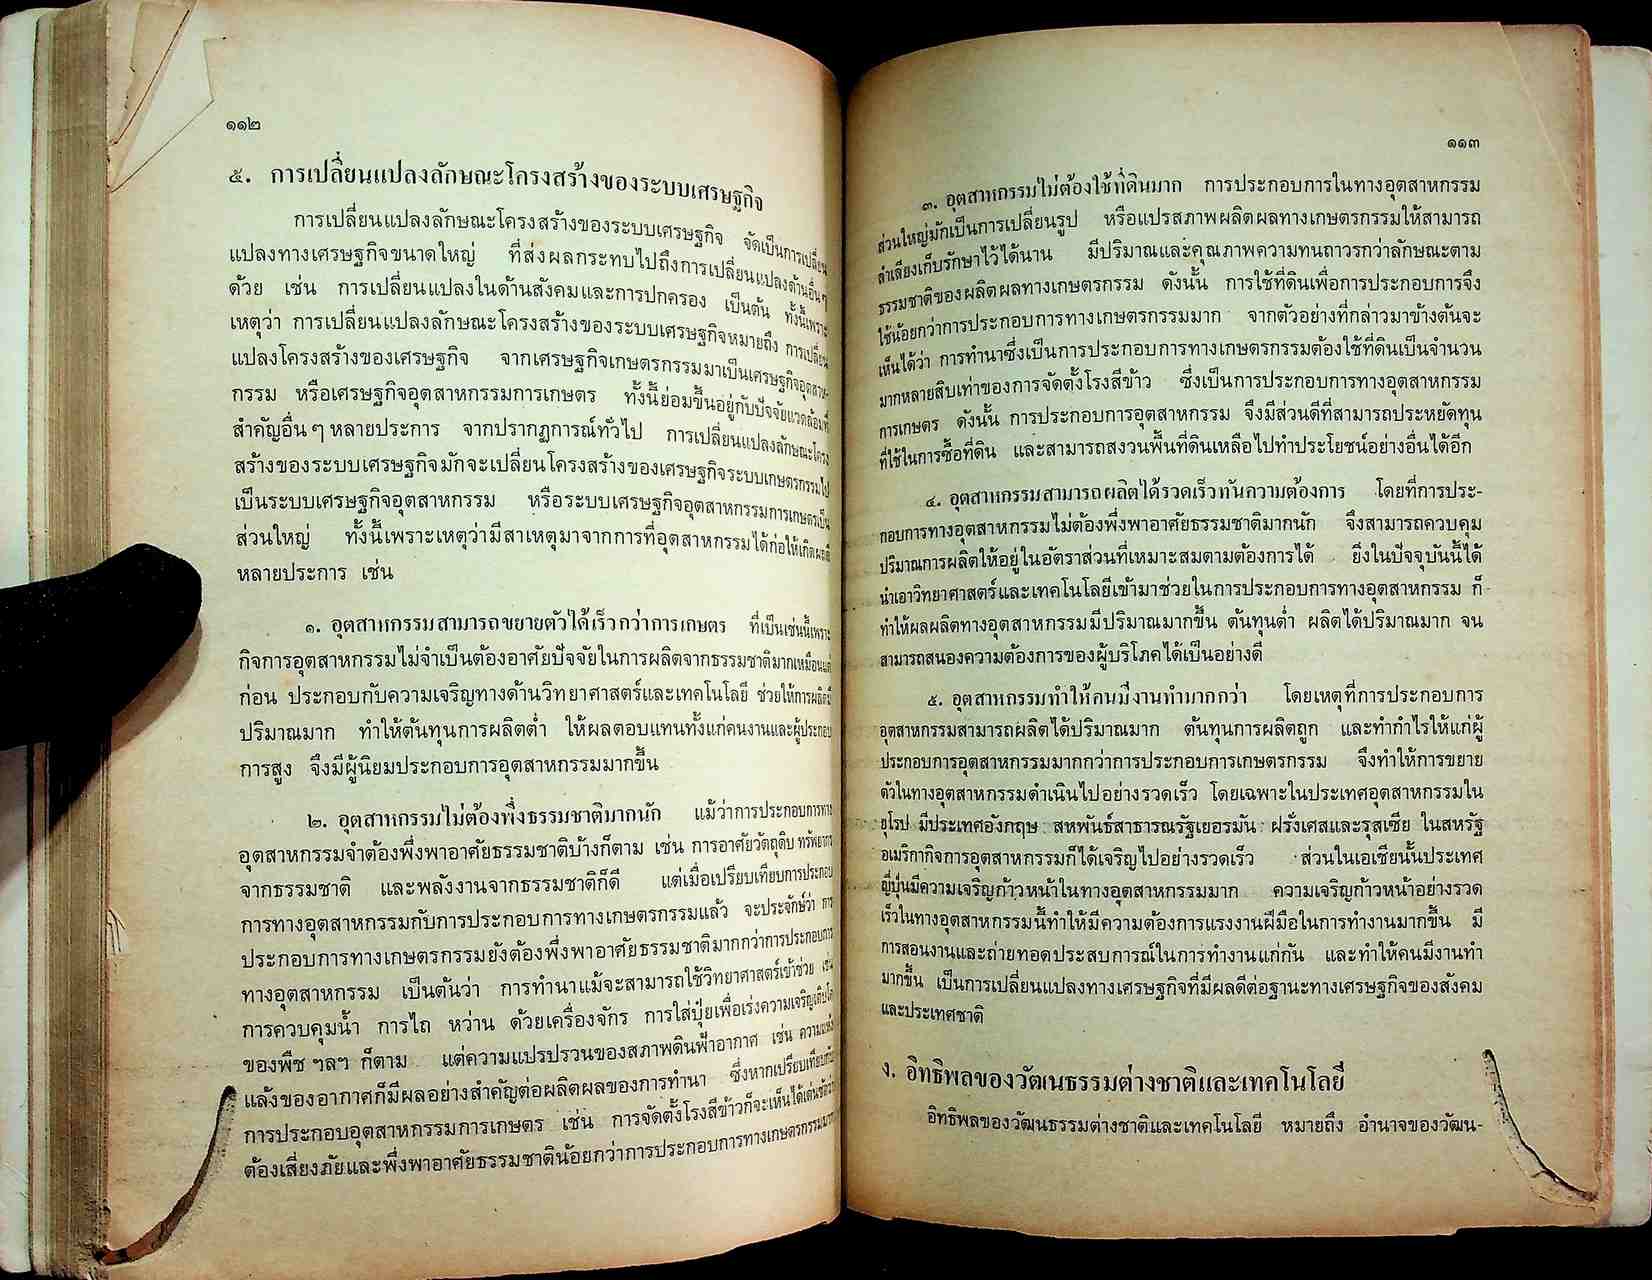 ๑๑๒
๕. การเปลี่ยนแปลงลักษณะโครงสร้างของระบบเศรษฐกิจ
การเปลี่ยนแปลงลักษณะโครงสร้างของระบบเศรษฐกิจ จัดเป็นการเปลี่ยน
แปลงทางเศรษฐกิจขนาดใหญ่ ที่ส่งผลกระทบไปถึงการเปลี่ยนแปลงด้านอื่นๆ
ด้วย เช่น การเปลี่ยนแปลงในด้านสังคมและการปกครอง เป็นต้น ทั้งนี้เพราะ
เหตุว่า การเปลี่ยนแปลงลักษณะโครงสร้างของระบบเศรษฐกิจหมายถึง การเปลี่ยน
แปลงโครงสร้างของเศรษฐกิจ จากเศรษฐกิจเกษตรกรรมมาเป็นเศรษฐกิจอุตสาห-
กรรม หรือเศรษฐกิจอุตสาหกรรมการเกษตร ทั้งนี้ย่อมขึ้นอยู่กับปัจจัยแวดล้อมที่
สำคัญอื่นๆ หลายประการ จากปรากฏการณ์ทั่วไป การเปลี่ยนแปลงลักษณะโครง
สร้างของระบบเศรษฐกิจมักจะเปลี่ยนโครงสร้างของเศรษฐกิจระบบเกษตรกรรมไป
เป็นระบบเศรษฐกิจอุตสาหกรรม หรือระบบเศรษฐกิจอุตสาหกรรมการเกษตรเป็น
ส่วนใหญ่ ทั้งนี้เพราะเหตุว่ามีสาเหตุมาจากการที่อุตสาหกรรมได้ก่อให้เกิดผลดี
หลายประการ เช่น
๑. อุตสาหกรรมสามารถขยายตัวได้เร็วกว่าการเกษตร ที่เป็นเช่นนี้เพราะ
กิจการอุตสาหกรรมไม่จำเป็นต้องอาศัยปัจจัยในการผลิตจากธรรมชาติมากเหมือนแต่
ก่อน ประกอบกับความเจริญทางด้านวิทยาศาสตร์และเทคโนโลยี ช่วยให้การผลิตมี
ปริมาณมาก ทำให้ต้นทุนการผลิตต่ำ ให้ผลตอบแทนทั้งแก่คนงานและผู้ประกอบ
การสูง จึงมีผู้นิยมประกอบการอุตสาหกรรมมากขึ้น
๒. อุตสาหกรรมไม่ต้องพึ่งธรรมชาติมากนัก แม้ว่าการประกอบการทาง
อุตสาหกรรมจำต้องพึ่งพาอาศัยธรรมชาติบ้างก็ตาม เช่น การอาศัยวัตถุดิบ ทรัพยากร
จากธรรมชาติ และพลังงานจากธรรมชาติก็ดี แต่เมื่อเปรียบเทียบการประกอบ
การทางอุตสาหกรรมกับการประกอบการทางเกษตรกรรมแล้ว จะประจักษ์ว่า การ
ประกอบการทางเกษตรกรรมยังต้องพึ่งพาอาศัยธรรมชาติมากกว่าการประกอบการ
ทางอุตสาหกรรม เป็นต้นว่า การทำนาแม้จะสามารถใช้วิทยาศาสตร์เข้าช่วย เช่น
การควบคุมน้ำ การไถ หว่าน ด้วยเครื่องจักร การใส่ปุ๋ยเพื่อเร่งความเจริญเติบโต
ของพืช ฯลฯ ก็ตาม แต่ความแปรปรวนของสภาพดินฟ้าอากาศ เช่น ความแห้ง
แล้งของอากาศก็มีผลอย่างสำคัญต่อผลิตผลของการทำนา ซึ่งหากเปรียบเทียบกับ
การประกอบอุตสาหกรรมการเกษตร เช่น การจัดตั้งโรงสีข้าวก็จะเห็นได้เด่นชัดว่า
ต้องเสี่ยงภัยและพึ่งพาอาศัยธรรมชาติน้อยกว่าการประกอบการทางเกษตรกรรมมาก
๑๑๓
๓. อุตสาหกรรมไม่ต้องใช้ที่ดินมาก การประกอบการในทางอุตสาหกรรม
ส่วนใหญ่มักเป็นการเปลี่ยนรูป หรือแปรสภาพผลิตผลทางเกษตรกรรมให้สามารถ
ลำเลียงเก็บรักษาไว้ได้นาน มีปริมาณและคุณภาพความทนถาวรกว่าลักษณะตาม
ธรรมชาติของผลิตผลทางเกษตรกรรม ดังนั้น การใช้ที่ดินเพื่อการประกอบการจึง
ใช้น้อยกว่าการประกอบการทางเกษตรกรรมมาก จากตัวอย่างที่กล่าวมาข้างต้นจะ
เห็นได้ว่า การทำนาซึ่งเป็นการประกอบการทางเกษตรกรรมต้องใช้ที่ดินเป็นจำนวน
มากหลายสิบเท่าของการจัดตั้งโรงสีข้าว ซึ่งเป็นการประกอบการทางอุตสาหกรรม
การเกษตร ดังนั้น การประกอบการอุตสาหกรรม จึงมีส่วนดีที่สามารถประหยัดทุน
ที่ใช้ในการซื้อที่ดิน และสามารถสงวนพื้นที่ดินเหลือไปทำประโยชน์อย่างอื่นได้อีก
๔. อุตสาหกรรมสามารถผลิตได้รวดเร็วทันความต้องการ โดยที่การประ-
กอบการทางอุตสาหกรรมไม่ต้องพึ่งพาอาศัยธรรมชาติมากนัก จึงสามารถควบคุม
ปริมาณการผลิตให้อยู่ในอัตราส่วนที่เหมาะสมตามต้องการได้ ยิ่งในปัจจุบันนี้ได้
นำเอาวิทยาศาสตร์และเทคโนโลยีเข้ามาช่วยในการประกอบการทางอุตสาหกรรม ก็
ทำให้ผลผลิตทางอุตสาหกรรมมีปริมาณมากขึ้น ต้นทุนต่ำ ผลิตได้ปริมาณมาก จน
สามารถสนองความต้องการของผู้บริโภคได้เป็นอย่างดี
๕. อุตสาหกรรมทำให้คนมีงานทำมากกว่า โดยเหตุที่การประกอบการ
อุตสาหกรรมสามารถผลิตได้ปริมาณมาก ต้นทุนการผลิตถูก และทำกำไรให้แก่ผู้
ประกอบการอุตสาหกรรมมากกว่าการประกอบการเกษตรกรรม จึงทำให้การขยาย
ตัวในทางอุตสาหกรรมดำเนินไปอย่างรวดเร็ว โดยเฉพาะในประเทศอุตสาหกรรมใน
ยุโรป มีประเทศอังกฤษ สหพันธ์สาธารณรัฐเยอรมัน ฝรั่งเศสและรุสเซีย ในสหรัฐ
อเมริกากิจการอุตสาหกรรมก็ได้เจริญไปอย่างรวดเร็ว ส่วนในเอเซียนั้นประเทศ
ญี่ปุ่นมีความเจริญก้าวหน้าในทางอุตสาหกรรมมาก ความเจริญก้าวหน้าอย่างรวด
เร็วในทางอุตสาหกรรมนี้ทำให้มีความต้องการแรงงานฝีมือในการทำงานมากขึ้น มี
การสอนงานและถ่ายทอดประสบการณ์ในการทำงานแก่กัน และทำให้คนมีงานทำ
มากขึ้น เป็นการเปลี่ยนแปลงทางเศรษฐกิจที่มีผลดีต่อฐานะทางเศรษฐกิจของสังคม
และประเทศชาติ
ง. อิทธิพลของวัฒนธรรมต่างชาติและเทคโนโลยี
อิทธิพลของวัฒนธรรมต่างชาติและเทคโนโลยี หมายถึง อำนาจของวัฒน-